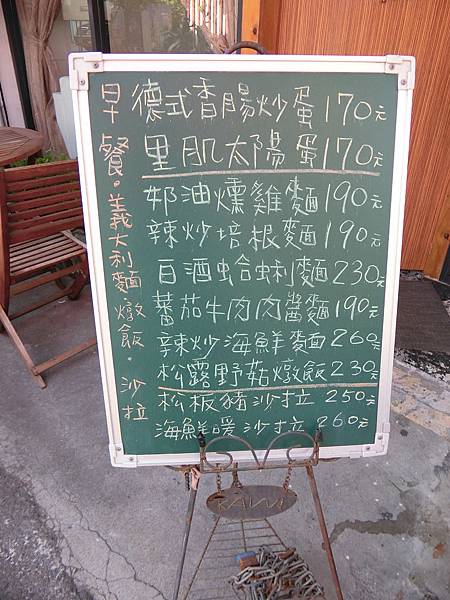 早餐。義大利麵.燉飯.沙拉
德式香腸炒蛋170元
里肌太陽蛋170元
奶油燻雞麵190元
辣炒培根麵190元
白酒蛤蜊麵230元
蕃茄牛肉肉醬麵190元
辣炒海鮮麵260元
松露野菇燉飯230元
松板豬沙拉250元
海鮮暖沙拉260元
KAWI